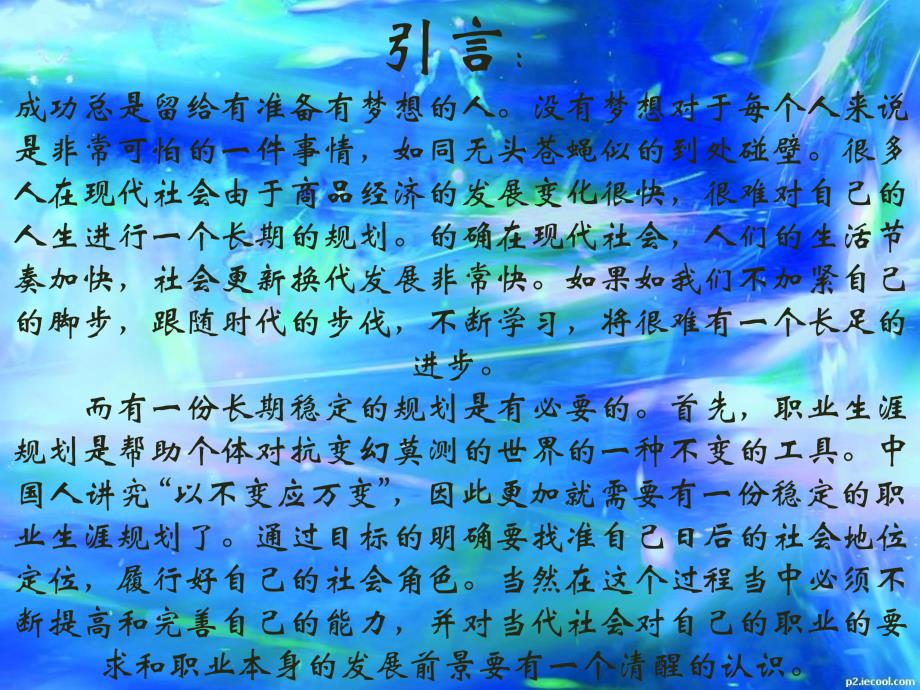 引言：
成功总是留给有准备有梦想的人。没有梦想对于每个人来说
是非常可怕的一件事情，如同无头苍蝇似的到处碰壁。很多
人在现代社会由于商品经济的发展变化很快，很难对自己的
人生进行一个长期的规划。的确在现代社会，人们的生活节
奏加快，社会更新换代发展非常快。如果如我们不加紧自己
的脚步，跟随时代的步伐，不断学习，将很难有一个长足的
进步。
而有一份长期稳定的规划是有必要的。首先，职业生涯
规划是帮助个体对抗变幻莫测的世界的一种不变的工具。中
国人讲究“以不变应万变”，因此更加就需要有一份稳定的职
业生涯规划了。通过目标的明确要找准自己日后的社会地位
定位，履行好自己的社会角色。当然在这个过程当中必须不
断提高和完善自己的能力，并对当代社会对自己的职业的要
求和职业本身的发展前景要有一个清醒的认识。
p2.iecool.com